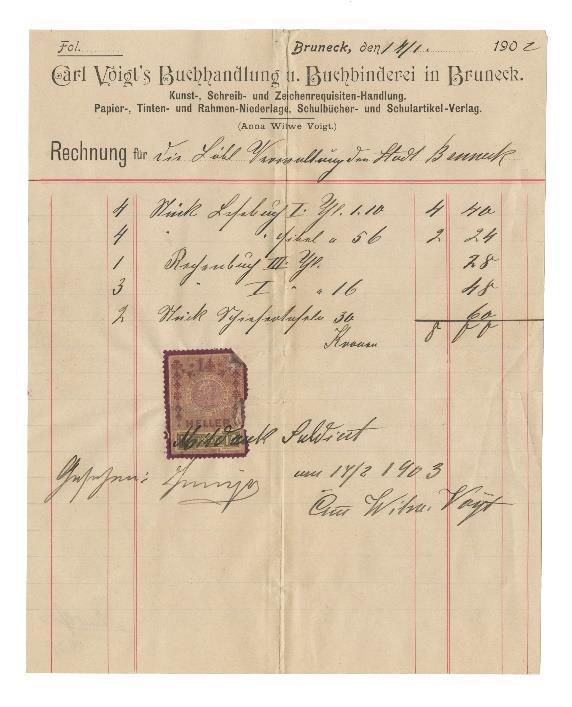 Fol.
Bruneck, den 1902
Carl Voigt's Buchhandlung u. Buchbinderei in Bruneck.
Kunst-, Schreib- und Zeichenrequisiten-Handlung.
Papier-, Tinten- und Rahmen-Niederlage, Schulbücher- und Schulartikel-Verlag.
(Anna Witwe Voigt.)
Rechnung für die Löbl Verwaltung der Stadt Bruneck
4 Stück Lesebuch I. Thl. 1.10 4 40
4 " " fibel a 56 2 24
1 Rechenbuch III. Thl. 28
3 " I " " 16 48
2 Stück Schiefertafeln 30 60
Kronen 8
14
HELLER
Mit Dank Saldirt
Gesehen:
am 17/2 1903
Witw. Voigt